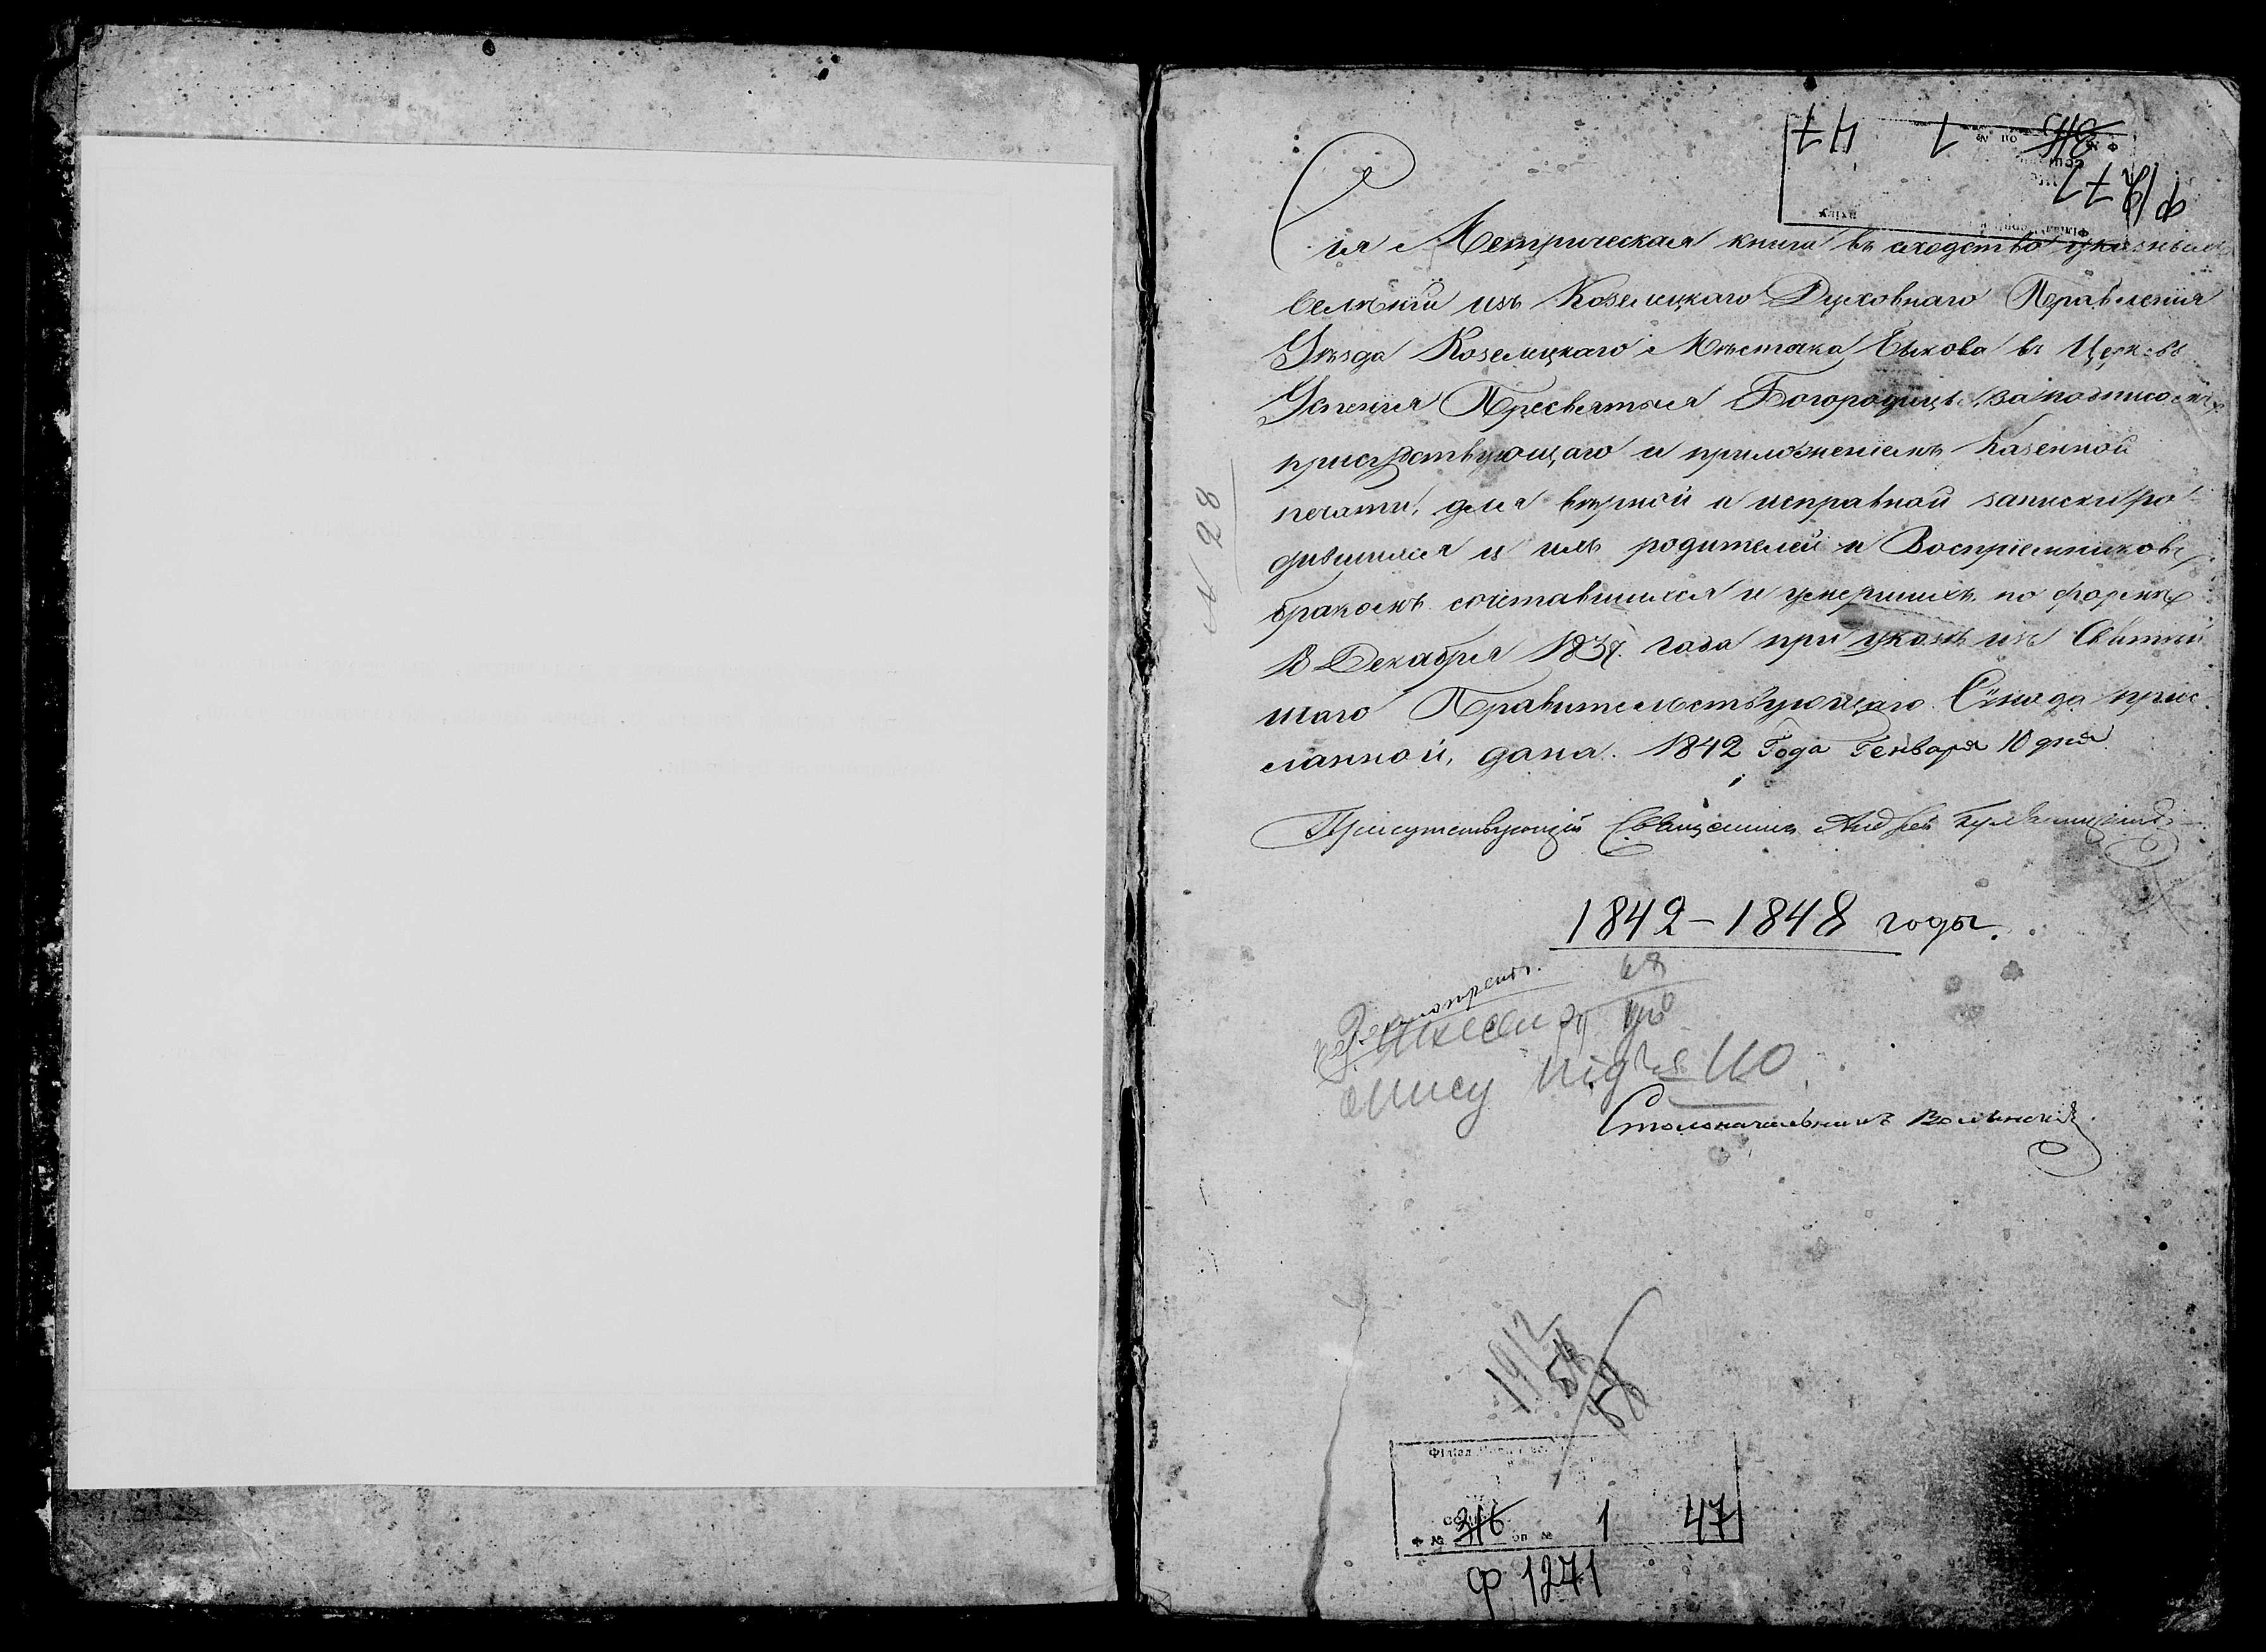 47 1 316
Ф 1271
Сія Метрическая книга въ сходство указныхъ
велѣній изъ Козелецкаго Духовнаго Правленія
Уѣзда Козелецкаго Мѣстечка Быкова въ Церковь
Успенія Пресвятыя Богородицы, за подписомъ
присудствующаго и приложеніемъ казенной
печати, для вѣрной и исправной записки ро
дившихся и ихъ родителей и Воспріемниковъ,
бракомъ сочетавшихся и умершихъ по формѣ
Декабря года при указѣ изъ Святѣй
шаго Правительствующаго Сѵнода прис
ланной, дана. 1842 Года Генваря 10 дня
Присутствующій Священникъ Андрей
N 28
1842 – 1848 годы.
опису 110
Столоначальникъ Волынскій
1912
Філіал
Ф № 316 оп № 1 47
Ф 1271